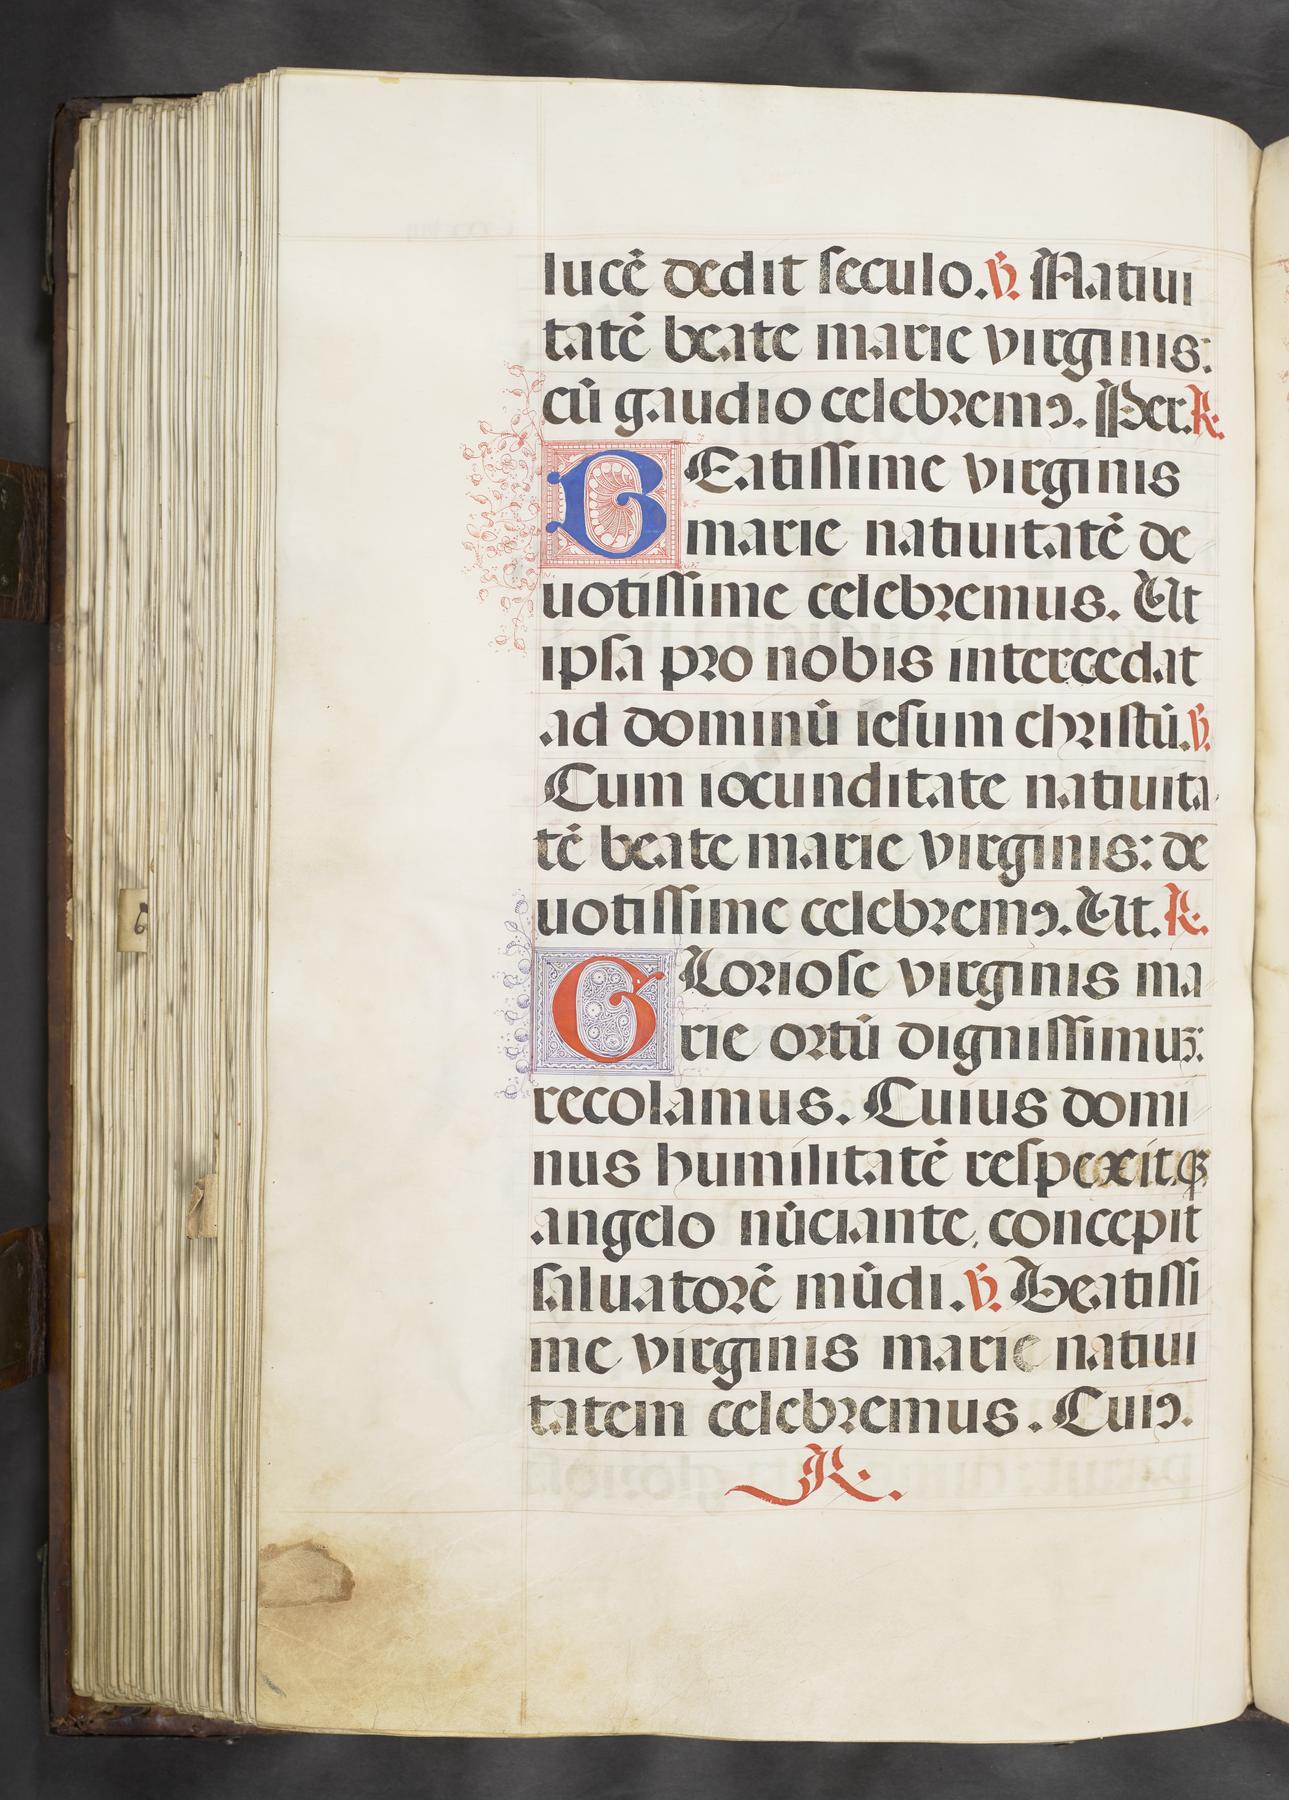 lucē dedit seculo. ℣. Natiui
tatē beate marie virginis:
cū gaudio celebremꝰ. Per. ℟.
BEatissime virginis
marie natiuitatē de
uotissime celebremus. Ut
ipsa pro nobis intercedat
ad dominū iesum christū. ℣.
Cum iocunditate natiuita
tē beate marie virginis: de
uotissime celebremꝰ. Ut. ℟.
GLoriose virginis ma
rie ortū dignissimuꝫ:
recolamus. Cuius domi
nus humilitatē respexit. q̄
angelo nūciante, concepit
saluatorē mūdi. ℣. Beatissi
me virginis marie natiui
tatem celebremus. Cuiꝰ.
℟.